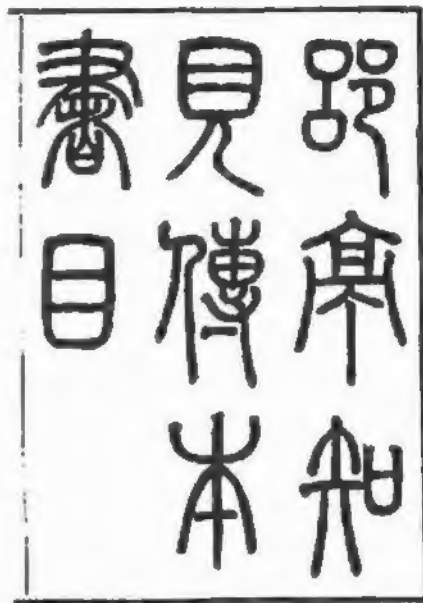 郘亭知
見傳本
書目